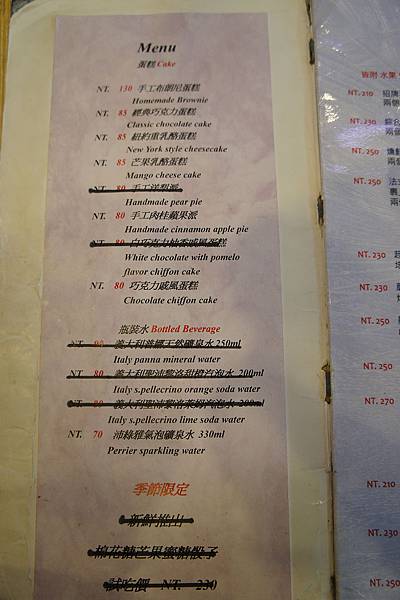 Menu
蛋糕 Cake
NT. 130 手工布朗尼蛋糕
Homemade Brownie
NT. 85 經典巧克力蛋糕
Classic chocolate cake
NT. 85 紐約重乳酪蛋糕
New York style cheesecake
NT. 85 芒果乳酪蛋糕
Mango cheese cake
NT. 80 手工洋梨派
Handmade pear pie
NT. 80 手工肉桂蘋果派
Handmade cinnamon apple pie
NT. 80 白巧克力柚香戚風蛋糕
White chocolate with pomelo
flavor chiffon cake
NT. 80 巧克力戚風蛋糕
Chocolate chiffon cake
瓶裝水 Bottled Beverage
NT. 90 義大利普娜天然礦泉水 250ml
Italy panna mineral water
NT. 80 義大利聖沛黎洛甜橙汽泡水 200ml
Italy s.pellecrino orange soda water
NT. 80 義大利聖沛黎洛萊姆汽泡水 200ml
Italy s.pellecrino lime soda water
NT. 70 沛綠雅氣泡礦泉水 330ml
Perrier sparkling water
季節限定
新鮮推出
棉花糖芒果蜜糖骰子
試吃價 NT. 230
皆附 水果
NT. 210 招牌
兩個
NT. 230 綜合
NT. 250
NT. 250 法
兩
NT. 230
NT. 230
NT. 250
NT. 250
NT. 270
NT. 210
NT. 230
NT. 250